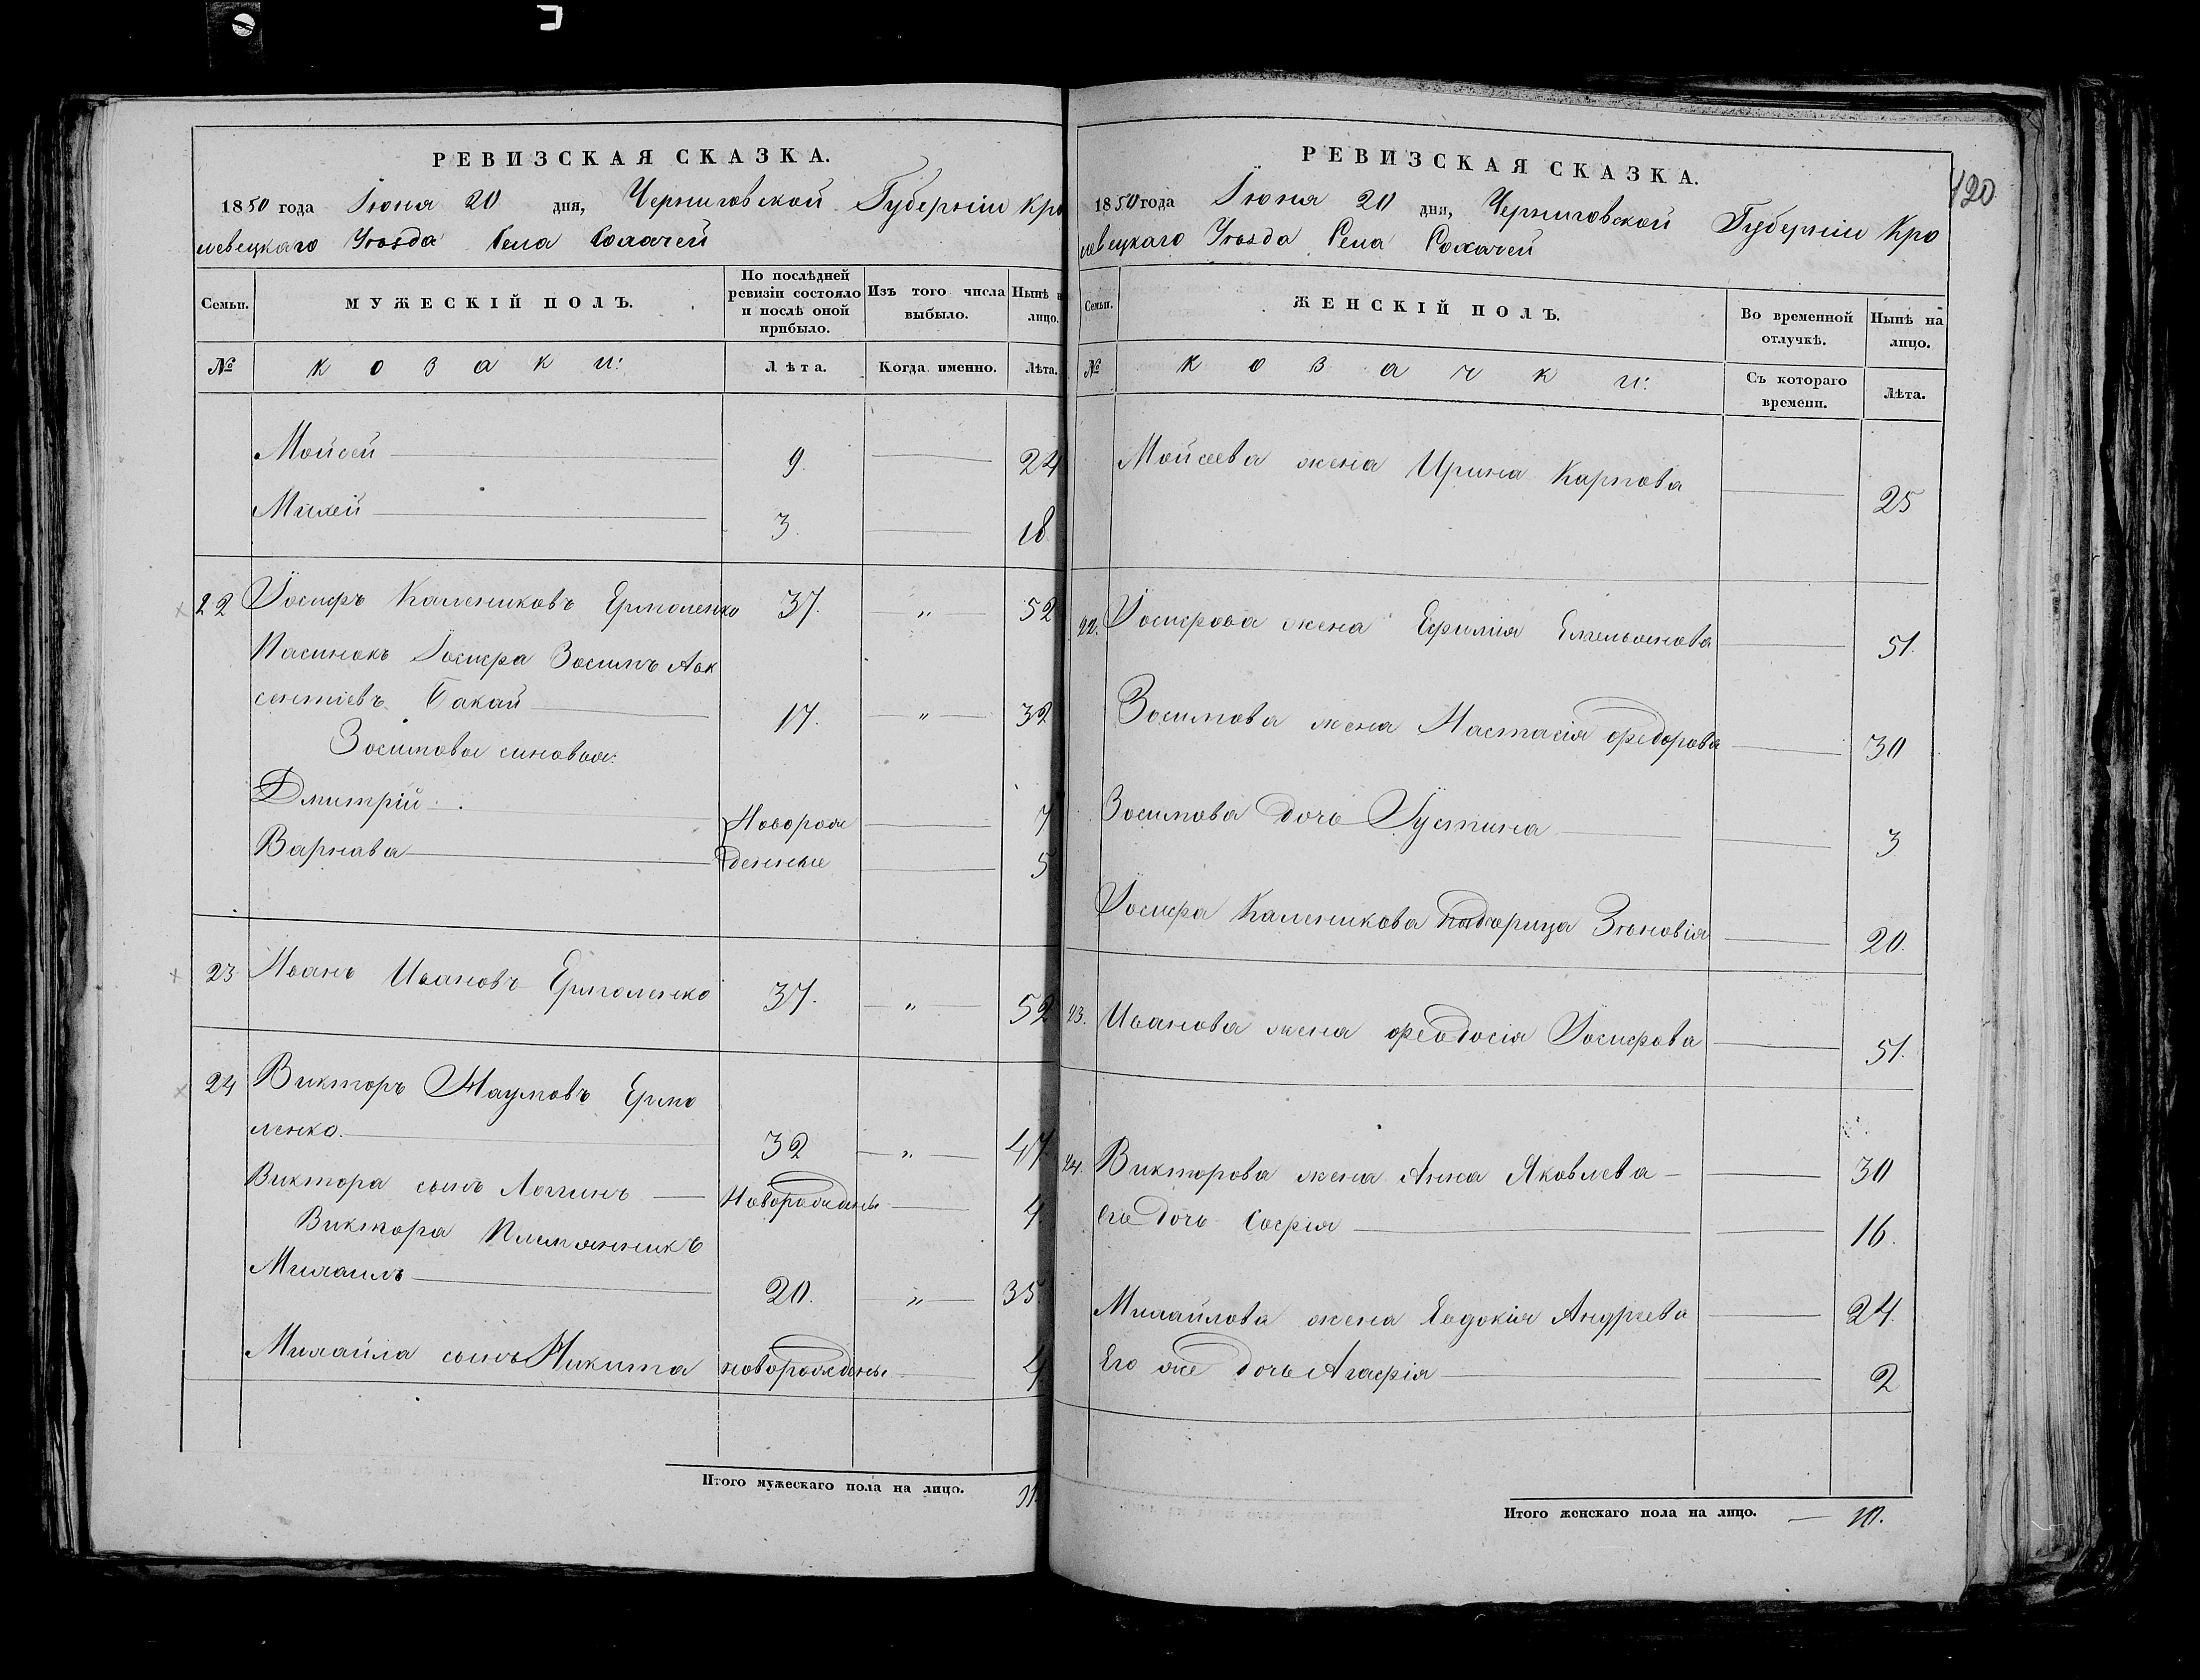 РЕВИЗСКАЯ СКАЗКА.
1850 года Іюня 20 дня, Черниговской Губерніи Кро
левецкаго Уѣзда Села Сохачей
Семьи.
МУЖЕСКІЙ ПОЛЪ.
По послѣдней ревизіи состояло и послѣ оной прибыло.
Изъ того числа выбыло.
Нынѣ на лицо.
№
козаки:
Лѣта.
Когда именно.
Лѣта.
Мойсей 9. 24
Михей 3. 18
22 Іосифъ Калениковъ Ермоленко 37. „ 52
Пасинокъ Іосифа Зосимъ Авк
сентіевъ Бакай 17. „ 32
Зосимовы синовья:
Дмитрій Новорож 7
Варнава денные 5
23 Иванъ Ивановъ Ермоленко 37. „ 52
24 Викторъ Наумовъ Ермо
ленко. 32 „ 47
Виктора сынъ Логинъ Новорожденъ 4
Виктора Племянникъ
Михаилъ 20. „ 35.
Михайла сынъ Никита новорожденъ 4
Итого мужескаго пола на лицо. 11.
420
РЕВИЗСКАЯ СКАЗКА.
1850 года Іюня 20 дня, Черниговской Губерніи Кро
левецкаго Уѣзда Села Сохачей
Семьи.
ЖЕНСКІЙ ПОЛЪ.
Во временной отлучкѣ.
Нынѣ на лицо.
№
козачки:
Съ котораго времени.
Лѣта.
Мойсеева жена Ирина Карпова 25
22. Іосифова жена Ефимія Емельянова 51.
Зосимова жена Настасія Федорова 30
Зосимова дочь Іустина 3
Іосифа Каленикова падчерица Зѣновія 20.
23. Иванова жена Феодосія Іосифова 51.
24. Викторова жена Анна Яковлева 30
его дочь Софія 16.
Михайлова жена Евдокія Андреева 24.
Его же дочь Агафія 2
Итого женскаго пола на лицо. 10.